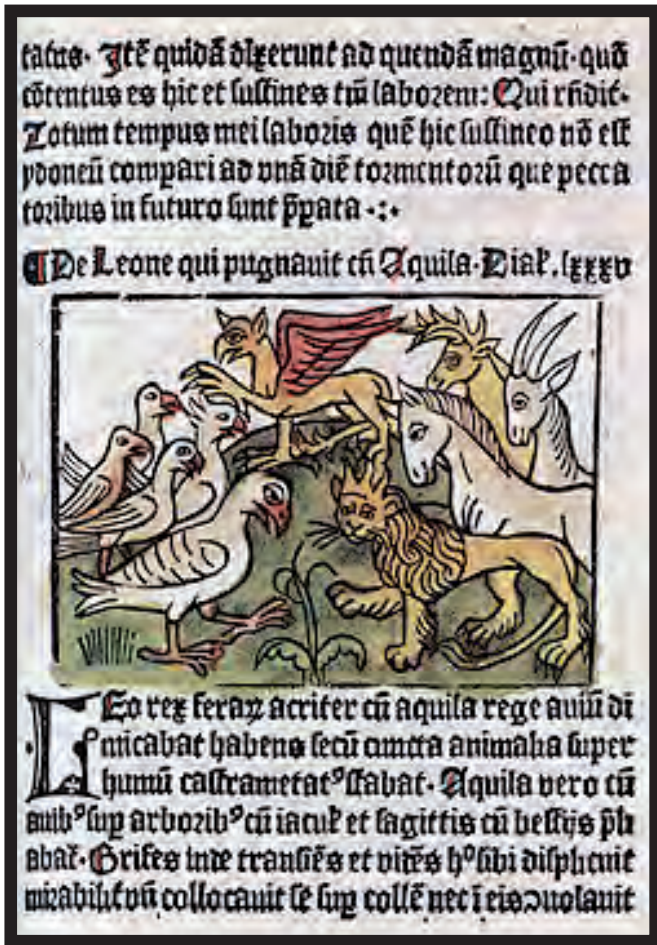 tatus· Itē quidā dixerunt ad quendā magnū· quō
cōtentus es hic et sustines tm̄ laborem: Qui rn̄dit·
Totum tempus mei laboris quē hic sustineo nō est
ydoneū compari ad vnā diē tormentorū que pecca
toribus in futuro sunt p̄pata ·:·
¶ De Leone qui pugnauit cū Aquila· Dial. lxxxv
LEo rex feraꝝ acriter cū aquila rege auiū di
micabat habens secū cuncta animalia super
humū castrametatꝰ stabat· Aquila vero cū
auibꝰ sup arboribꝰ cū iacul et sagittis cū bestijs
abat· Grifes inde transiēs et vidēs hꝰ sibi displicuit
collocauit se sup collē nec ī eis ↄuolauit